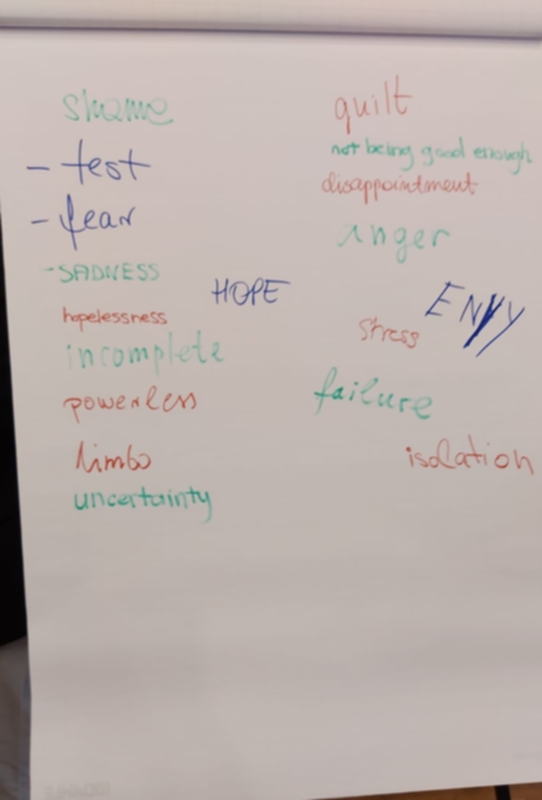 shame
- test
- fear
- SADNESS
HOPE
hopelessness
incomplete
powerless
limbo
uncertainty
guilt
not being good enough
disappointment
anger
ENVY
stress
failure
isolation